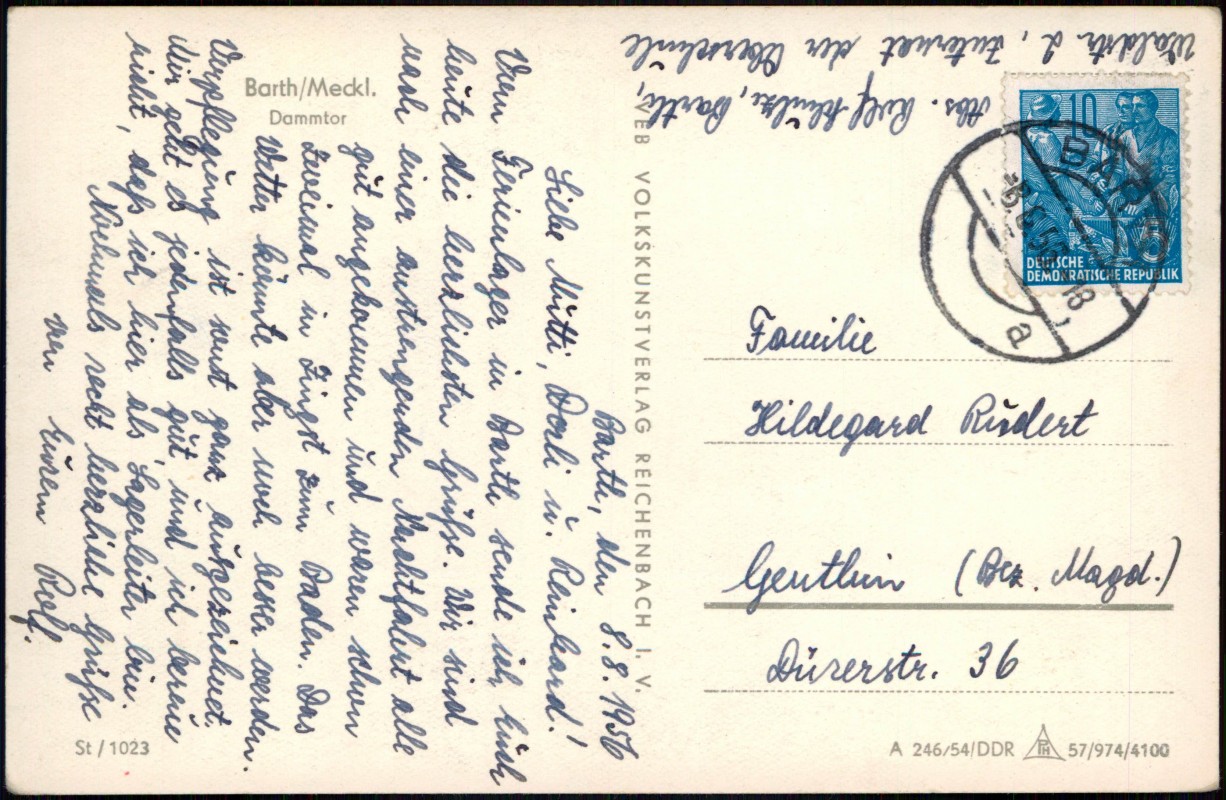 Barth/Meckl.
Dammtor
Barth, den 8.8.1956
Liebe Mutti, Dorli u. Reinhard!
Vom Ferienlager in Barth sende ich Euch
heute die herzlichsten Grüße. Wir sind
nach einer anstrengenden Nachtfahrt alle
gut angekommen und waren schon
zweimal in Zingst zum Baden. Das
Wetter könnte aber noch besser werden.
Verpflegung ist sonst ganz ausgezeichnet.
Mir geht es jedenfalls gut, und ich bereue
nicht, daß ich hier als Lagerleiter bin.
Nochmals recht herzliche Grüße
von Eurem Rolf.
St/1023
VEB VOLKSKUNSTVERLAG REICHENBACH I. V.
Abs. Rolf Barth,
Waldstr. 2, Internat der Oberschule
10
DEUTSCHE
DEMOKRATISCHE REPUBLIK
BARTH
18
a
Familie
Hildegard Rudert
Genthin (Bez. Magd.)
Dürerstr. 36
A 246/54/DDR PH 57/974/4100